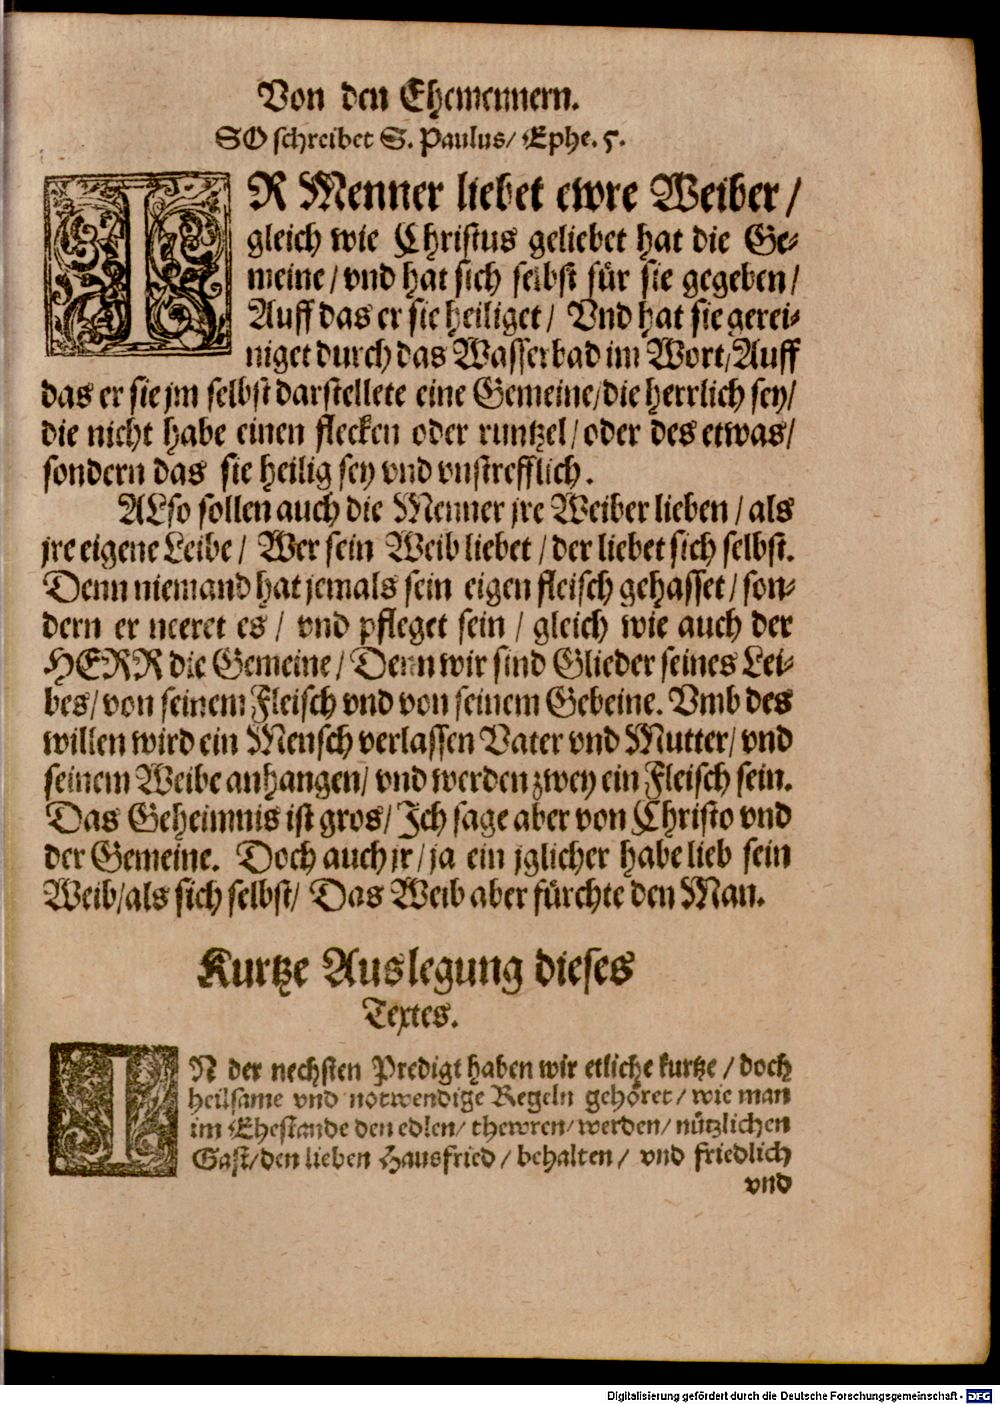 Von den Ehemennern.
SO schreibet S. Paulus/ Ephe. 5.
IR Menner liebet ewre Weiber/
gleich wie Christus geliebet hat die Ge-
meine/ vnd hat sich selbst für sie gegeben/
Auff das er sie heiliget/ Vnd hat sie gerei-
niget durch das Wasserbad im Wort/ Auff
das er sie jm selbst darstellete eine Gemeine/ die herrlich sey/
die nicht habe einen flecken oder runtzel/ oder des etwas/
sondern das sie heilig sey vnd vnstrefflich.
ALso sollen auch die Menner jre Weiber lieben/ als
jre eigene Leibe/ Wer sein Weib liebet/ der liebet sich selbst.
Denn niemand hat jemals sein eigen fleisch gehasset/ son-
dern er neeret es/ vnd pfleget sein/ gleich wie auch der
HERR die Gemeine/ Denn wir sind Glieder seines Lei-
bes/ von seinem Fleisch vnd von seinem Gebeine. Vmb des
willen wird ein Mensch verlassen Vater vnd Mutter/ vnd
seinem Weibe anhangen/ vnd werden zwey ein Fleisch sein.
Das Geheimnis ist gros/ Ich sage aber von Christo vnd
der Gemeine. Doch auch jr/ ja ein jglicher habe lieb sein
Weib/ als sich selbst/ Das Weib aber fürchte den Man.
Kurtze Auslegung dieses
Textes.
IN der nechsten Predigt haben wir etliche kurtze/ doch
heilsame vnd notwendige Regeln gehöret/ wie man
im Ehestande den edlen/ thewren/ werden/ nützlichen
Gast/ den lieben Hausfried/ behalten/ vnd friedlich
vnd
Digitalisierung gefördert durch die Deutsche Forschungsgemeinschaft - DFG